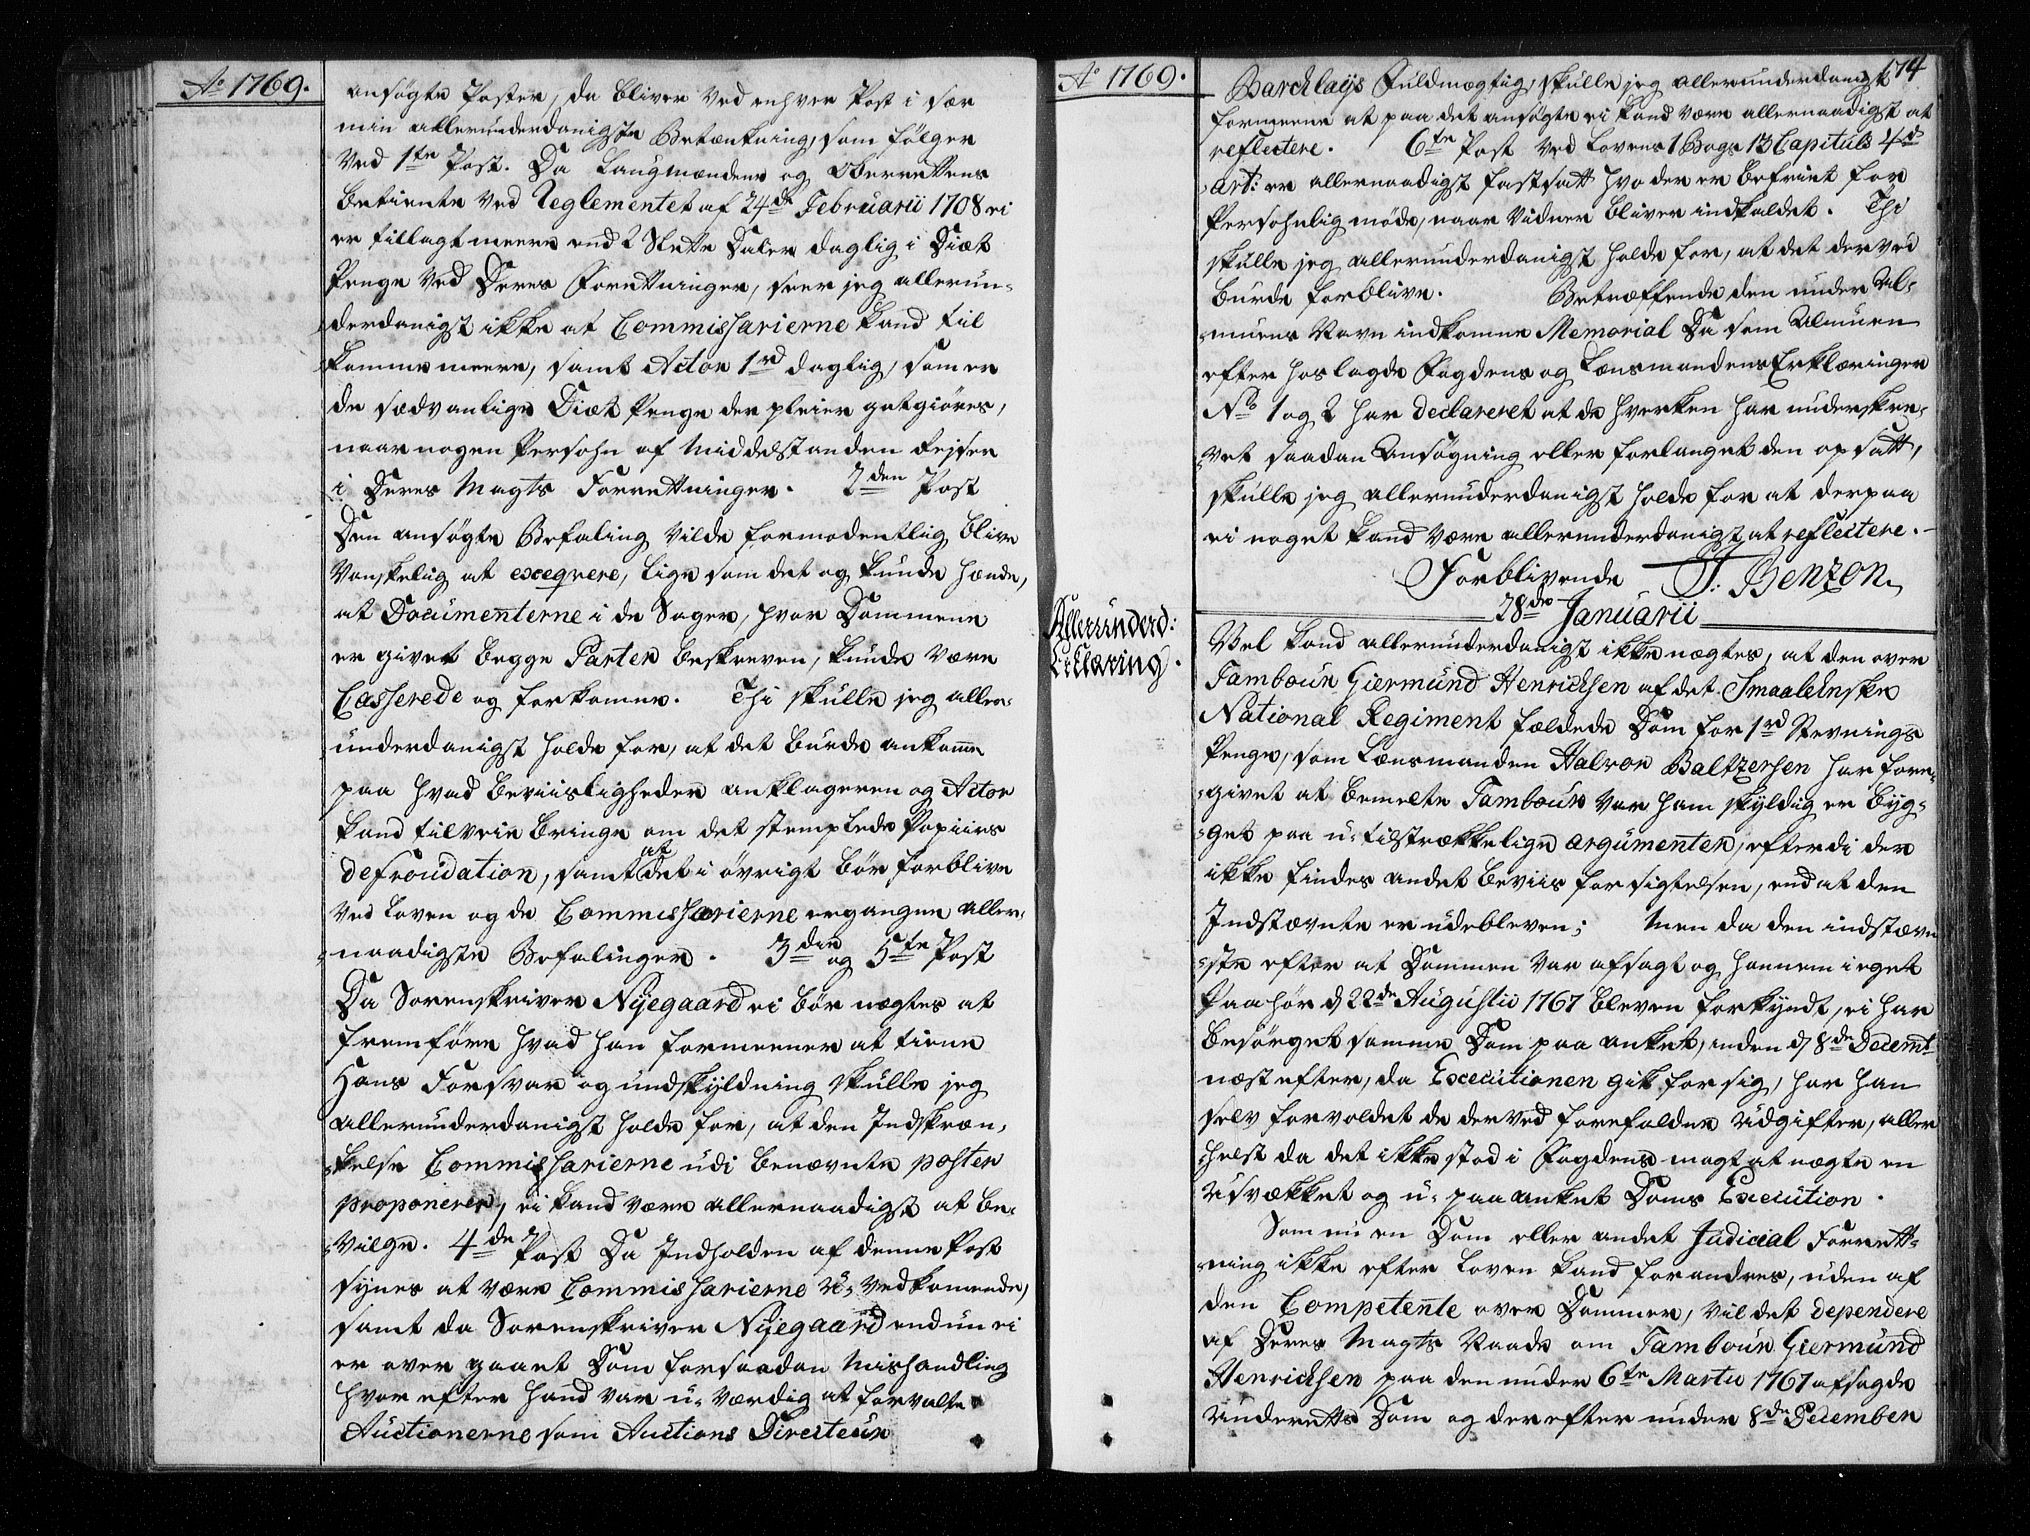 Ao 1769.
ansøgte Poster, da bliver ved enhver Post i sær
min allerunderdanigste Betænkning, som følger
Ved 1ste Post. Da Laugmændene og Oberrettens
Betiente ved Reglementet af 24de Februarii 1708 ei
er tillagt meere end 2 Slette Daler daglig i Diæt
Penge ved Deres Forrettninger, seer jeg allerun-
derdanigst ikke at Commissarierne kand til
komme meere, samt Actor 1rd daglig, som er
de sædvanlige Diæt Penge der pleier godgiøres,
naar nogen Persohn af Middelstanden Rejser
i Deres Mayts Forrettninger. 2den Post
Den ansøgte Befaling vilde formodentlig blive
Vanskelig at exeqvere, lige som det og kunde hænde,
at Documenterne i de Sager, hvor Dommene
er givet begge Parter beskreven, kunde være
Casserede og forkomne. Thi skulle jeg aller-
underdanigst holde for, at det burde ankomme
paa hvad Beviisligheder anklageren og Actor
kand tilveie bringe om det stemplede Papiirs
defroudation, samt at det i øvrigt bør forblive
ved Loven og de Commissarierne ergangne aller-
naadigste Befalinger. 3die og 5te Post
Da Sorenskriver Nyegaard ei bør nægtes at
fremføre hvad han formeener at tiene
Hans Forsvar og undskyldning skulle jeg
allerunderdanigst holde for, at den Indskræn-
kelse Commissarierne udi benævnte poster
proponerer, ei kand være allernaadigst at be-
vilge. 4de Post Da Indholden af denne Post
synes at være Commissarierne u-vedkomende,
samt da Sorenskriver Nyegaard endnu ei
er over gaaet Dom for saadan Mishandling
hvor efter hand var u-værdig at forvalte
Auctionerne som Auctions Directeur
Ao 1769.
174
Barchlays Fuldmægtig, skulle jeg allerunderdanigst
formeene at paa det ansøgte ei kand være allernaadigst at
reflectere. 6te Post ved Lovens 1 Bogs 13 Capituls 4d
art: er allernaadigst fastsatt hvo der er befriet for
Persohnlig møde, naar Vidner bliver indkaldet. Thi
skulle jeg allerunderdanigst holde for, at det derved
burde forblive. Betræffende den under Al-
muens Navn indkomne Memorial Da som Almuen
efter hoslagde Fogdens og Lænsmandens Erklæringer
No 1 og 2 har declareret at de hverken har underskre-
vet saadan Ansøgning eller forlanget den opsatt,
skulle jeg allerunderdanigst holde for at derpaa
ei noget kand være allerunderdanigst at reflectere.
Forblivende J: Benzon
28de Januarii
Allerunderd:
Erklæring.
Vel kand allerunderdanigst ikke nægtes, at den over
Tambour Giermund Henrichsen af det Smaalehnske
National Regiment fældede Dom for 1rd Stevnings
Penge, som Lænsmanden Halvor Baltzersen har fore-
givet at bemelte Tambour var ham skyldig er byg-
get paa u-tilstrækkelige argumenter, efterdi der
ikke findes andet beviis for sigtelsen, end at den
Indstævnte er udebleven; Men da den indstævn
te efter at Dommen var afsagt og hannem i eget
Paahør d 22de Augustii 1767 bleven forkyndt, ei har
besørget samme Dom paa anket, inden d 8de Decembr
næstefter, da Executionen gik for sig, har han
selv forvoldet de derved forefaldne udgifter, aller
helst da det ikke stod i Fogdens magt at nægte en
usvækket og u-paaanket Doms Execution.
Som nu en Dom eller andet Judicial Forrett-
ning ikke efter Loven kand forandres, uden af
den Competente over Dommer, vil det dependere
af Deres Mayts Naade om Tambour Giermund
Henrichsen paa den under 6te Martii 1767 afsagde
Underretts Dom og derefter under 8de December